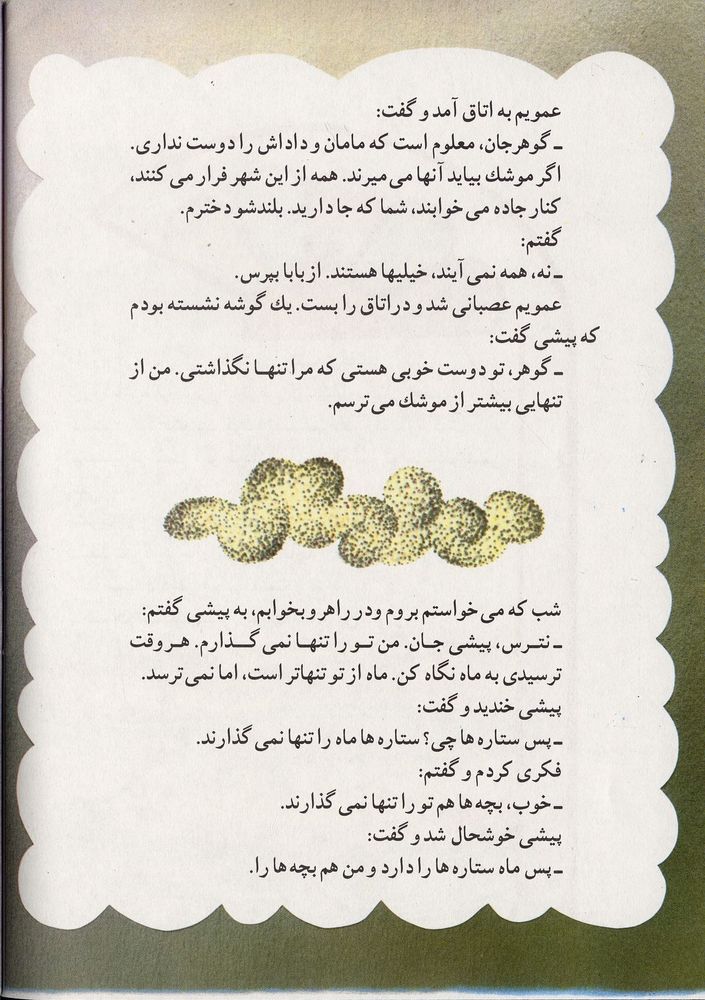 عمویم به اتاق آمد و گفت:
ـ گوهرجان، معلوم است که مامان و داداش را دوست نداری.
اگر موشك بیاید آنها می میرند. همه از این شهر فرار می کنند،
کنار جاده می خوابند، شما که جا دارید. بلندشو دخترم.
گفتم:
ـ نه، همه نمی آیند، خیلیها هستند. از بابا بپرس.
عمویم عصبانی شد و در اتاق را بست. یك گوشه نشسته بودم
که پیشی گفت:
ـ گوهر، تو دوست خوبی هستی که مرا تنهـا نگذاشتی. من از
تنهایی بیشتر از موشك می ترسم.
شب که می خواستم بروم و در راهرو بخوابم، به پیشی گفتم:
ـ نتـرس، پیشی جـان. من تـو را تنهـا نمی گـذارم. هـر وقت
ترسیدی به ماه نگاه کن. ماه از تو تنهاتر است، اما نمی ترسد.
پیشی خندید و گفت:
ـ پس ستاره ها چی؟ ستاره ها ماه را تنها نمی گذارند.
فکری کردم و گفتم:
ـ خوب، بچه ها هم تو را تنها نمی گذارند.
پیشی خوشحال شد و گفت:
ـ پس ماه ستاره ها را دارد و من هم بچه ها را.